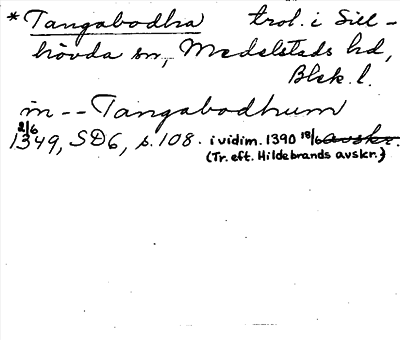 *Tangabodha trol. i Sill-
hövda sn, Medelstads hd,
Blek. l.
in -- Tangabodhum
2/6
1349, SD6, s. 108. i vidim. 1390 18/6 avskr.
(Tr. eft. Hildebrands avskr.)